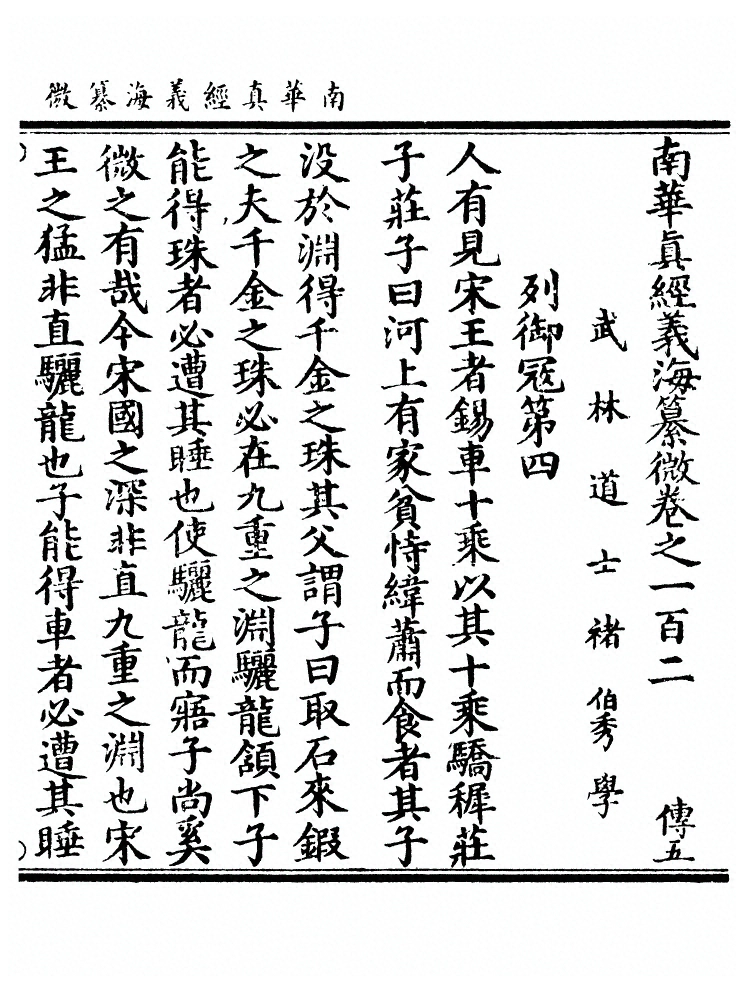 南華真經義海纂微
南華眞經義海纂微卷之一百二 傳五
武林道士褚伯秀學
列御寇第四
人有見宋王者錫車十乘以其十乘驕穉莊
子莊子曰河上有家貧恃緯蕭而食者其子
没於淵得千金之珠其父謂子曰取石來鍜
之夫千金之珠必在九重之淵驪龍頷下子
能得珠者必遭其睡也使驪龍而寤子尚奚
微之有哉今宋國之深非直九重之淵也宋
王之猛非直驪龍也子能得車者必遭其睡